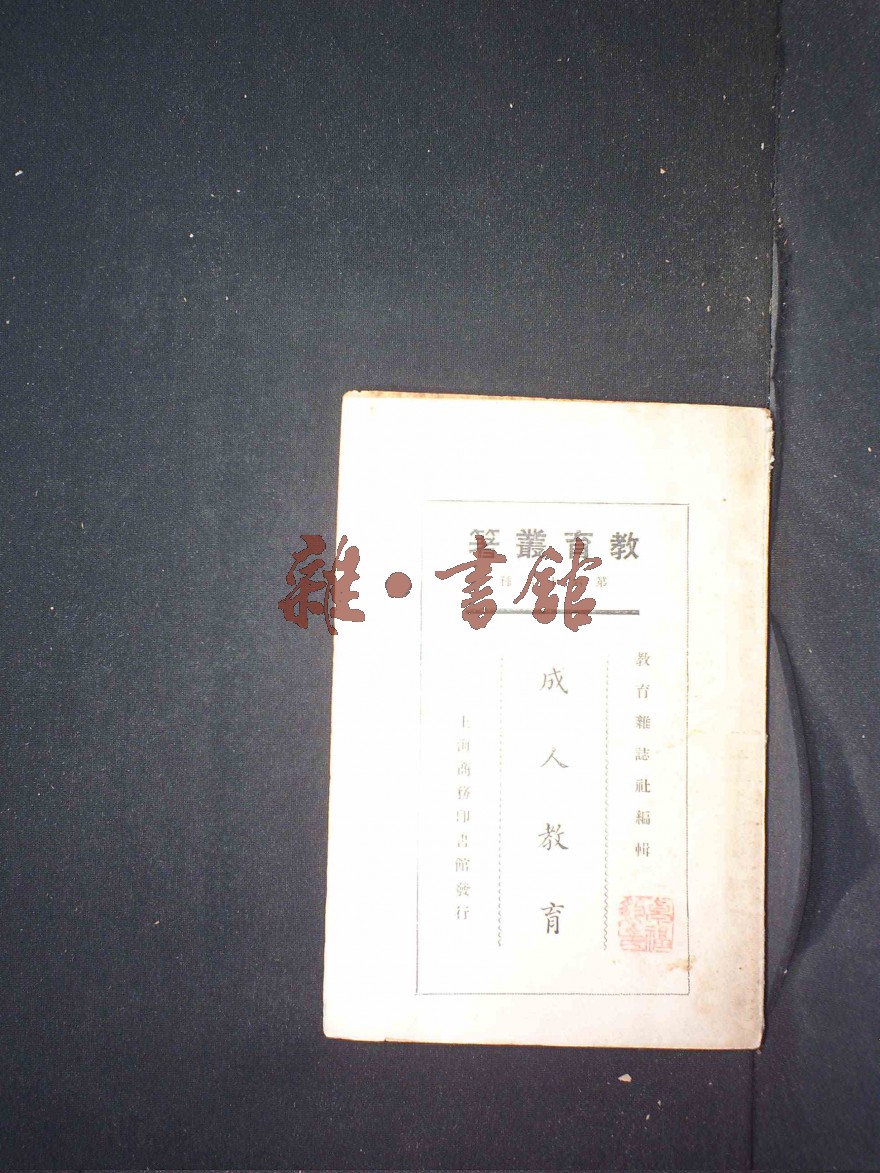 教育叢著
第
種
教育雜誌社編輯
成人教育
上海商務印書館發行
雜·書館